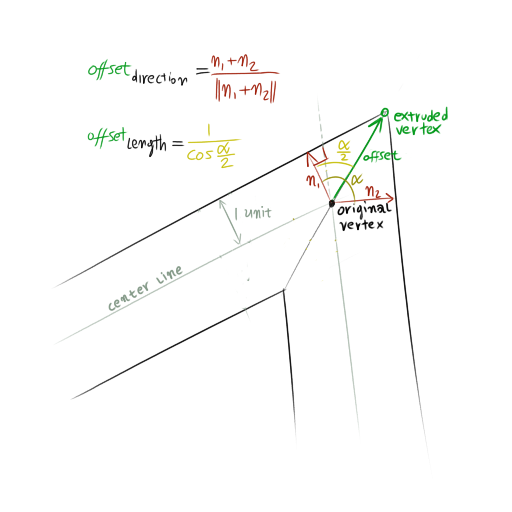 offset direction = n₁+n₂ / ‖n₁+n₂‖
offset Length = 1 / cos α/2
extruded
vertex
α/2
offset
n₁
α
n₂
original
vertex
1 unit
center Line